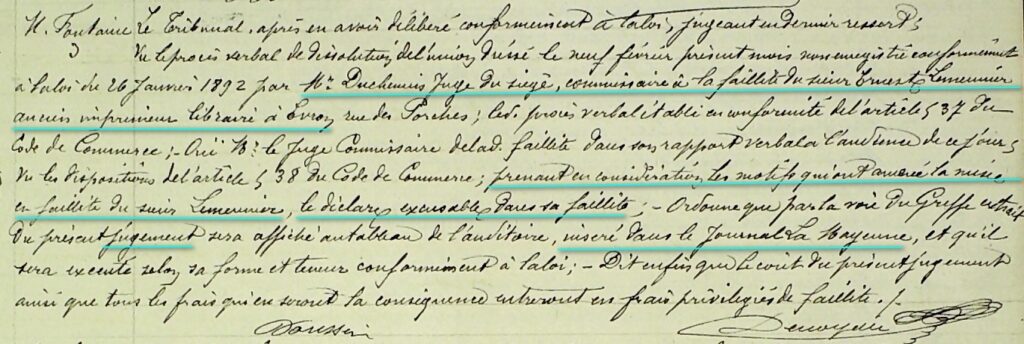 M. Fontaine Le Tribunal, après en avoir délibéré conformément à la loi, jugeant en dernier ressort;
3 Vu le procès verbal de dissolution de l'union dressé le neuf février présent mois non enregistré conformément
à la loi du 26 Janvier 1892 par Mr. Duchemin Juge du siège, commissaire à la faillite du sieur Ernest Lemeunier
ancien imprimeur libraire à Evron rue des Porches; led. procès verbal établi en conformité de l'article 537 du
Code de Commerce; - Ouï Mr. le Juge Commissaire de lad. faillite dans son rapport verbal à l'audience de ce jour;
Vu les dispositions de l'article 538 du Code de Commerce; prenant en considération les motifs qui ont amené la mise
en faillite du sieur Lemeunier, le déclare excusable dans sa faillite; - Ordonne que par la voie du Greffe extrait
du présent jugement sera affiché au tableau de l'auditoire, inséré dans le Journal La Mayenne, et qu'il
sera exécuté selon sa forme et teneur conformément à la loi; - Dit enfin que le coût du présent jugement
ainsi que tous les frais qui en seront la conséquence entreront en frais privilégiés de faillite. /.